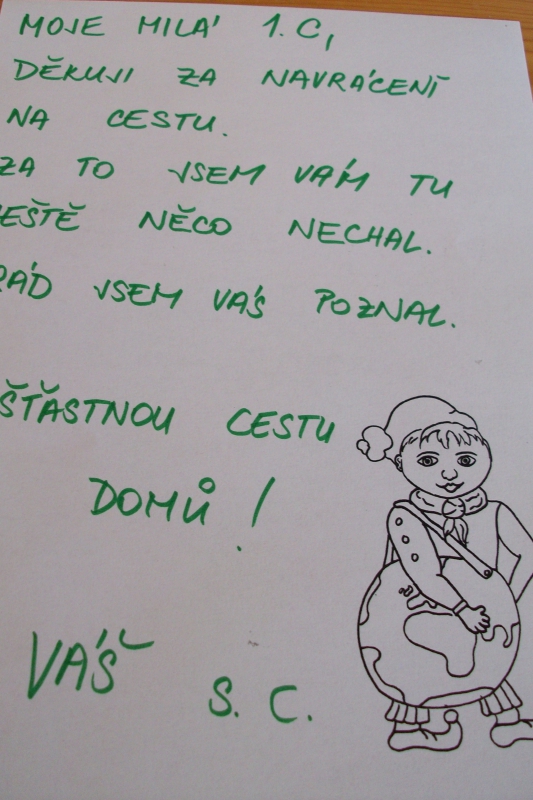 MOJE MILÁ 1. C,
DĚKUJI ZA NAVRÁCENÍ
NA CESTU.
ZA TO JSEM VÁM TU
EŠTĚ NĚCO NECHAL.
RÁD JSEM VÁS POZNAL.
ŠŤASTNOU CESTU
DOMŮ!
VÁŠ S. C.